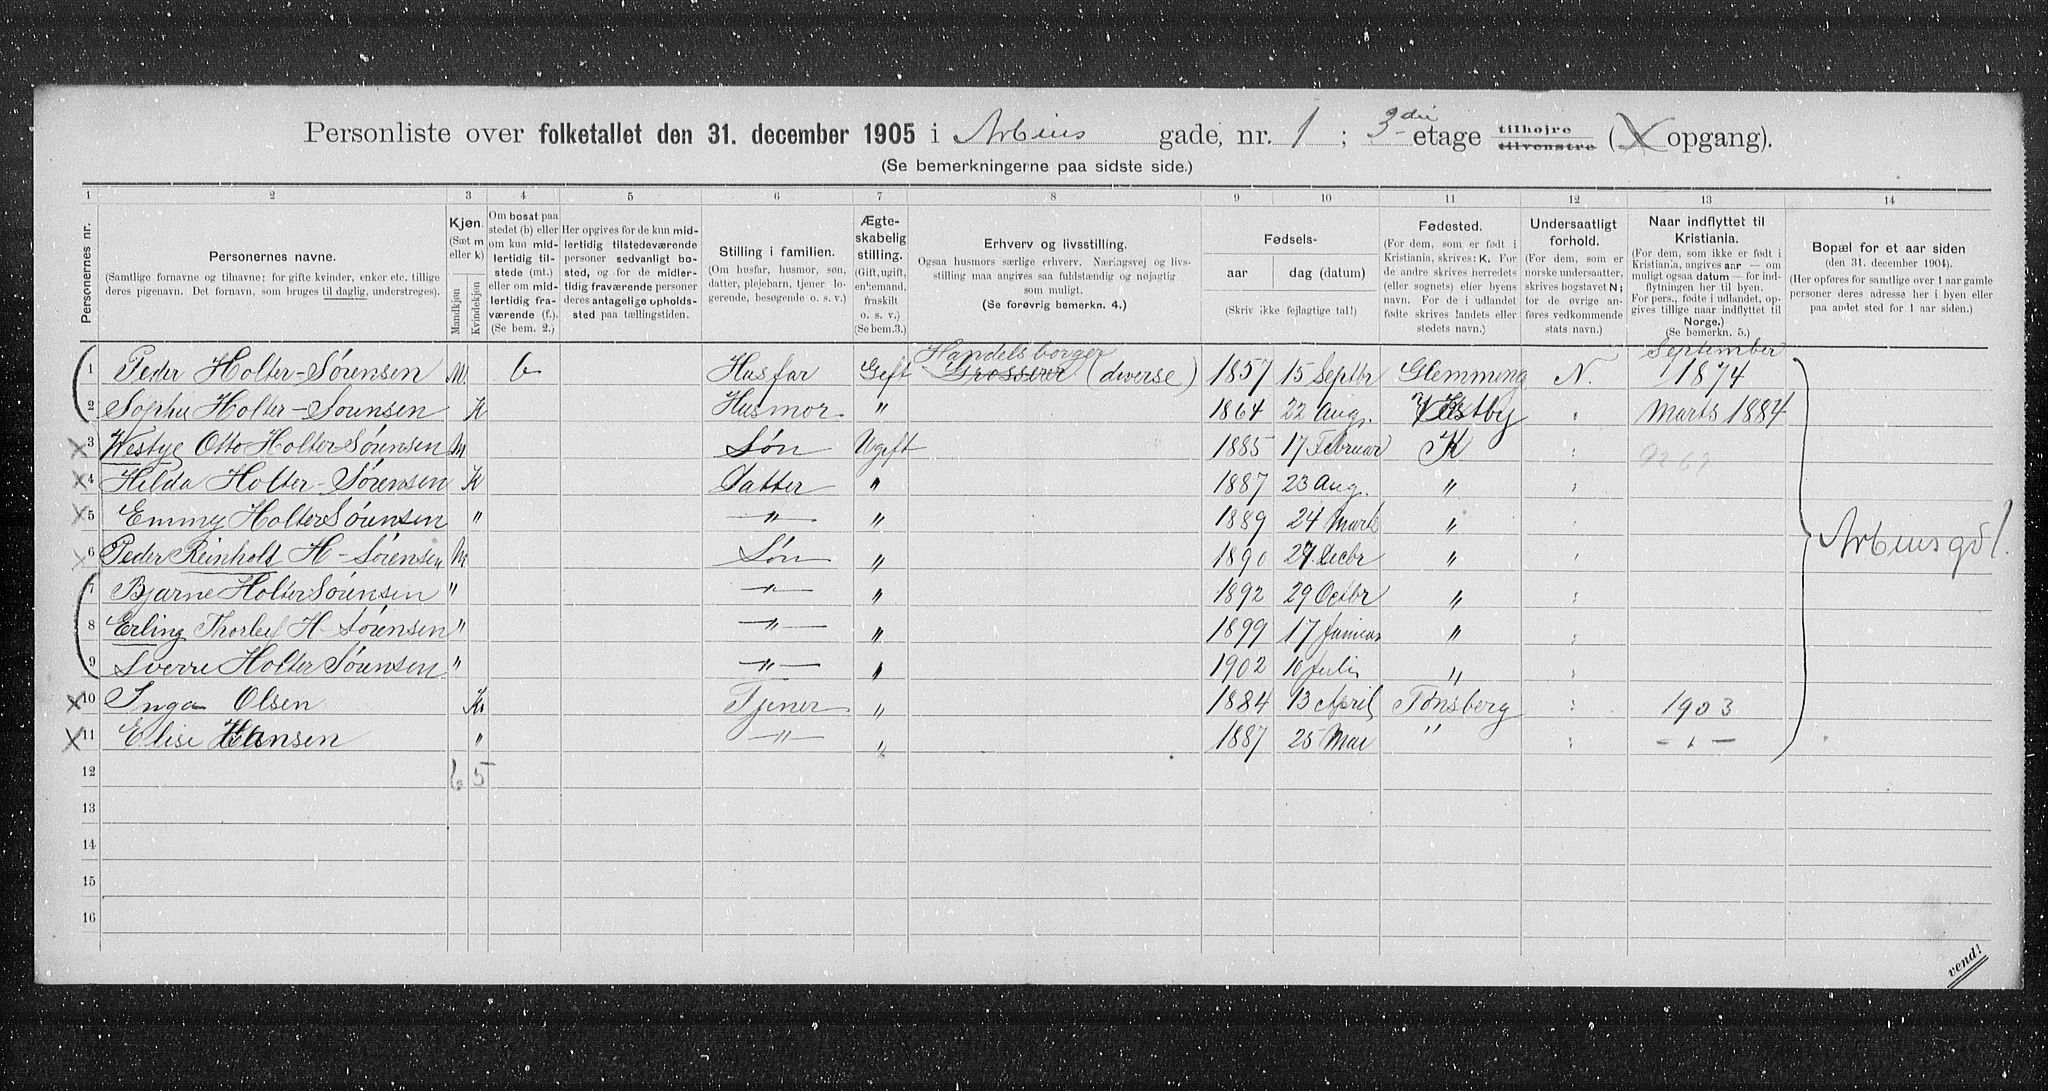 Personliste over folketallet den 31. december 1905 i Arbins gade, nr. 1 ; 3die etage tilhøjre tilvenstre ( X opgang).
(Se bemerkningerne paa sidste side.)
1 2 3 4 5 6 7 8 9 10 11 12 13 14
Personernes nr.
Personernes navne.
(Samtlige fornavne og tilnavne; for gifte kvinder, enker etc. tillige deres pigenavn. Det fornavn, som bruges til daglig, understreges).
Kjøn.
(Sæt m eller k)
Mandkjøn
Kvindekjøn
Om bosat paa stedet (b) eller om kun midlertidig tilstede (mt.) eller om midlertidig fraværende (f.). (Se bem. 2.)
Her opgives for de kun midlertidig tilstedeværende personer sedvanligt bosted, og for de midlertidig fraværende personer deres antagelige opholdssted paa tællingstiden.
Stilling i familien.
(Om husfar, husmor, søn, datter, plejebarn, tjener, logerende, besøgende o. s. v.)
Ægteskabelig stilling.
(Gift, ugift, enkemand, fraskilt o. s. v.)
(Se bem.3.)
Erhverv og livsstilling.
Ogsaa husmors særlige erhverv. Næringsvej og livsstilling maa angives saa fuldstændig og nøjagtig som muligt.
(Se forøvrig bemerkn. 4.)
Fødsels-
aar
dag (datum)
(Skriv ikke fejlagtige tal!)
Fødested.
(For dem, som er født i Kristiania, skrives: K. For de andre skrives herredets (eller sognets) eller byens navn. For de i udlandet fødte skrives landets eller stedets navn.)
Undersaatligt forhold.
(For dem, som er norske undersaatter, skrives bogstavet N; for de øvrige anføres vedkommende stats navn.)
Naar indflyttet til Kristiania.
(For dem, som ikke er født i Kristiania, angives aar – om muligt ogsaa datum – for indflytningen her til byen. For pers., fødte i udlandet, opgives tillige naar indflyttet til Norge.)
(Se bemerkn. 5.)
Bopæl for et aar siden
(den 31. december 1904).
(Her opføres for samtlige over 1 aar gamle personer deres adresse her i byen eller paa andet sted for 1 aar siden.)
1 Peder Holter-Sørensen M. b Husfar Gift Handelsborger Grosserer (diverse) 1857 15 Septbr Glemming N. September 1874
2 Sophie Holter-Sørensen K Husmor " 1864 22 Aug. Vestby " Marts 1884
3 Westye Otto Holter Sørensen M Søn Ugift 1885 17 Februar K "
4 Hilda Holter-Sørensen K Datter " 1887 23 Aug. " "
5 Emmy Holter Sørensen " —"— " 1889 24 Marts " "
6 Peder Reinholt H-Sørensen M Søn " 1890 27 Decbr " "
7 Bjarne Holter Sørensen " —"— " 1892 29 Octbr " "
8 Erling Thorleif H-Sørensen " —"— " 1899 17 Januar " "
9 Sverre Holter Sørensen " —"— " 1902 10 Juli " "
Arbinsgd 1.
10 Inga Olsen K. Tjener " 1884 13 April Tønsberg " 1903
11 Elise Hansen " —"— " 1887 25 Mai " " —"—
12 6 5
13
14
15
16
vend!